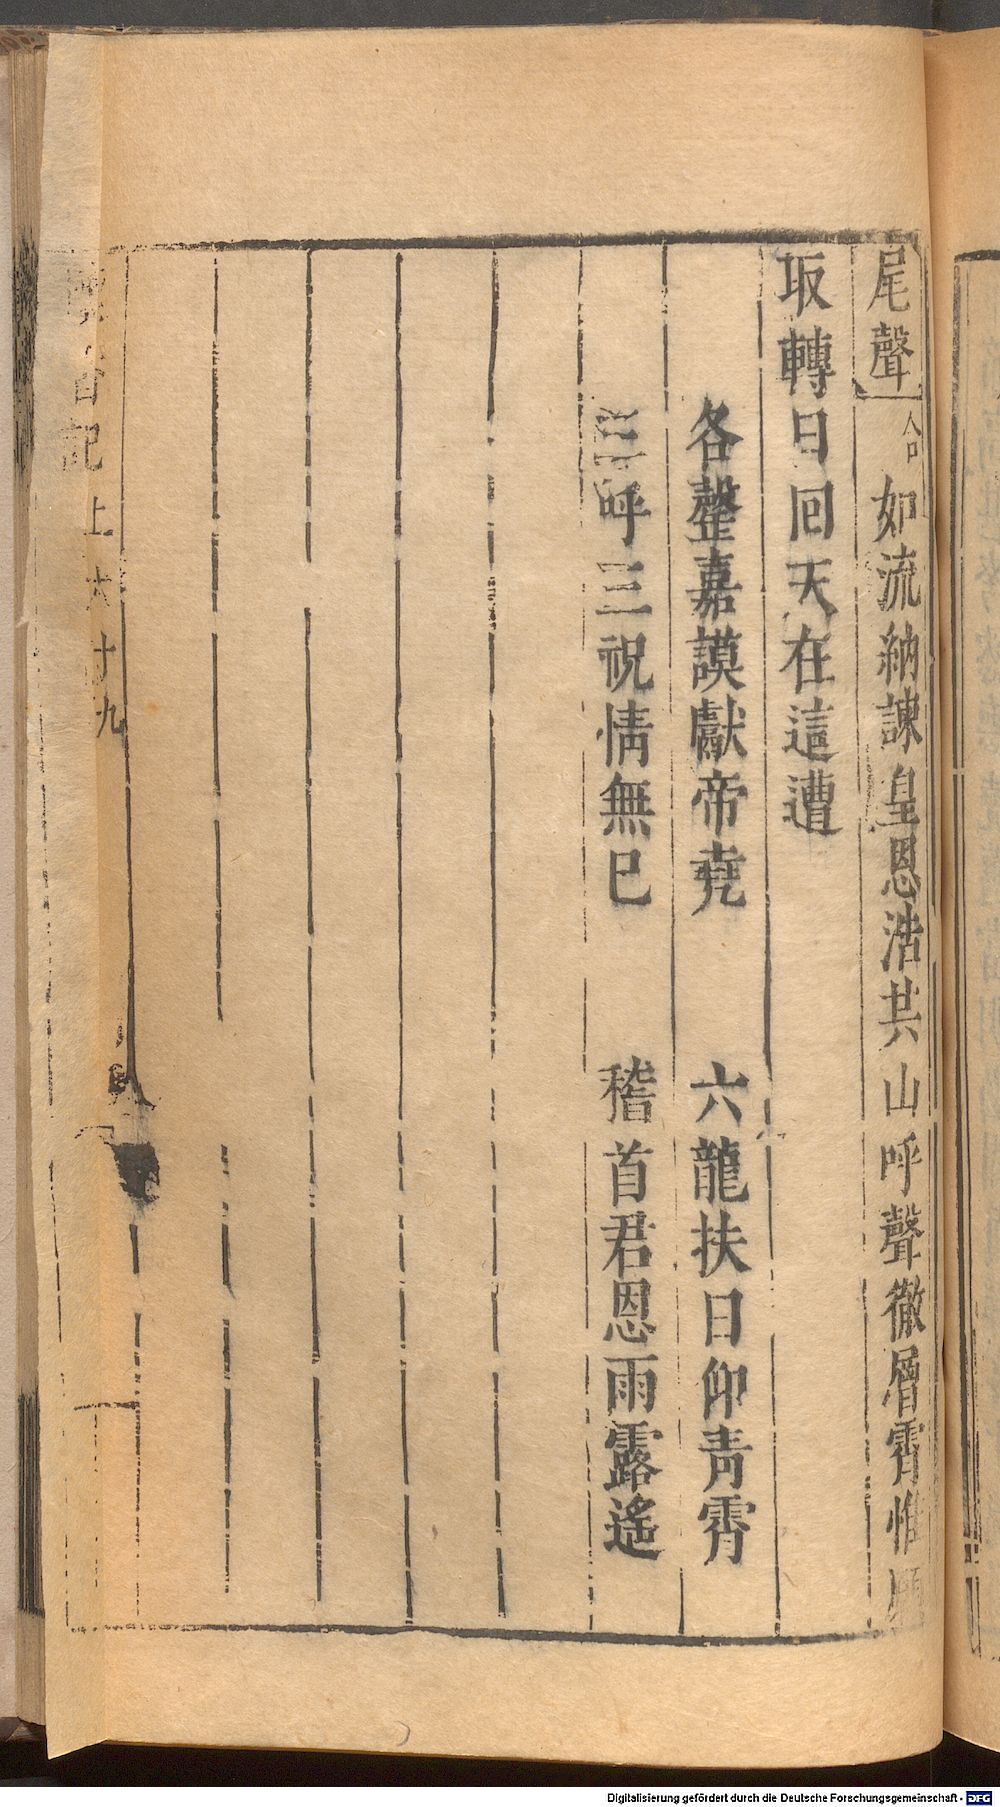 尾聲 合 如流納諫皇恩浩共山呼聲徹層霄惟願
取轉日回天在這遭
各罄嘉謨獻帝堯 六龍扶日仰青霄
呼三祝情無已 稽首君恩雨露遙
記 上 十九
Digitalisierung gefördert durch die Deutsche Forschungsgemeinschaft - DFG